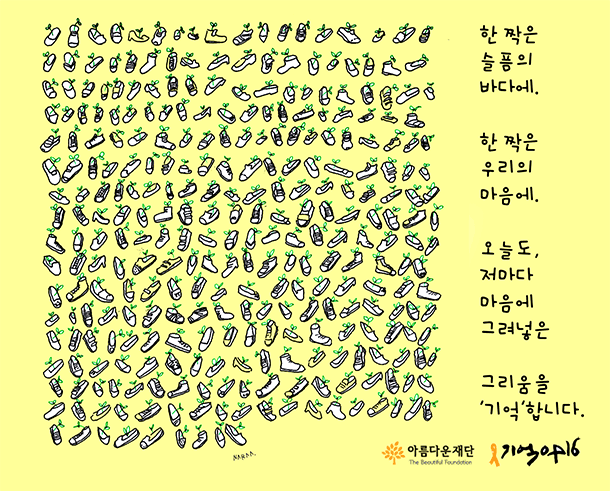 한 짝은
슬픔의
바다에.
한 짝은
우리의
마음에.
오늘도,
저마다
마음에
그려넣은
그리움을
‘기억’합니다.
아름다운재단
The Beautiful Foundation
기억0416